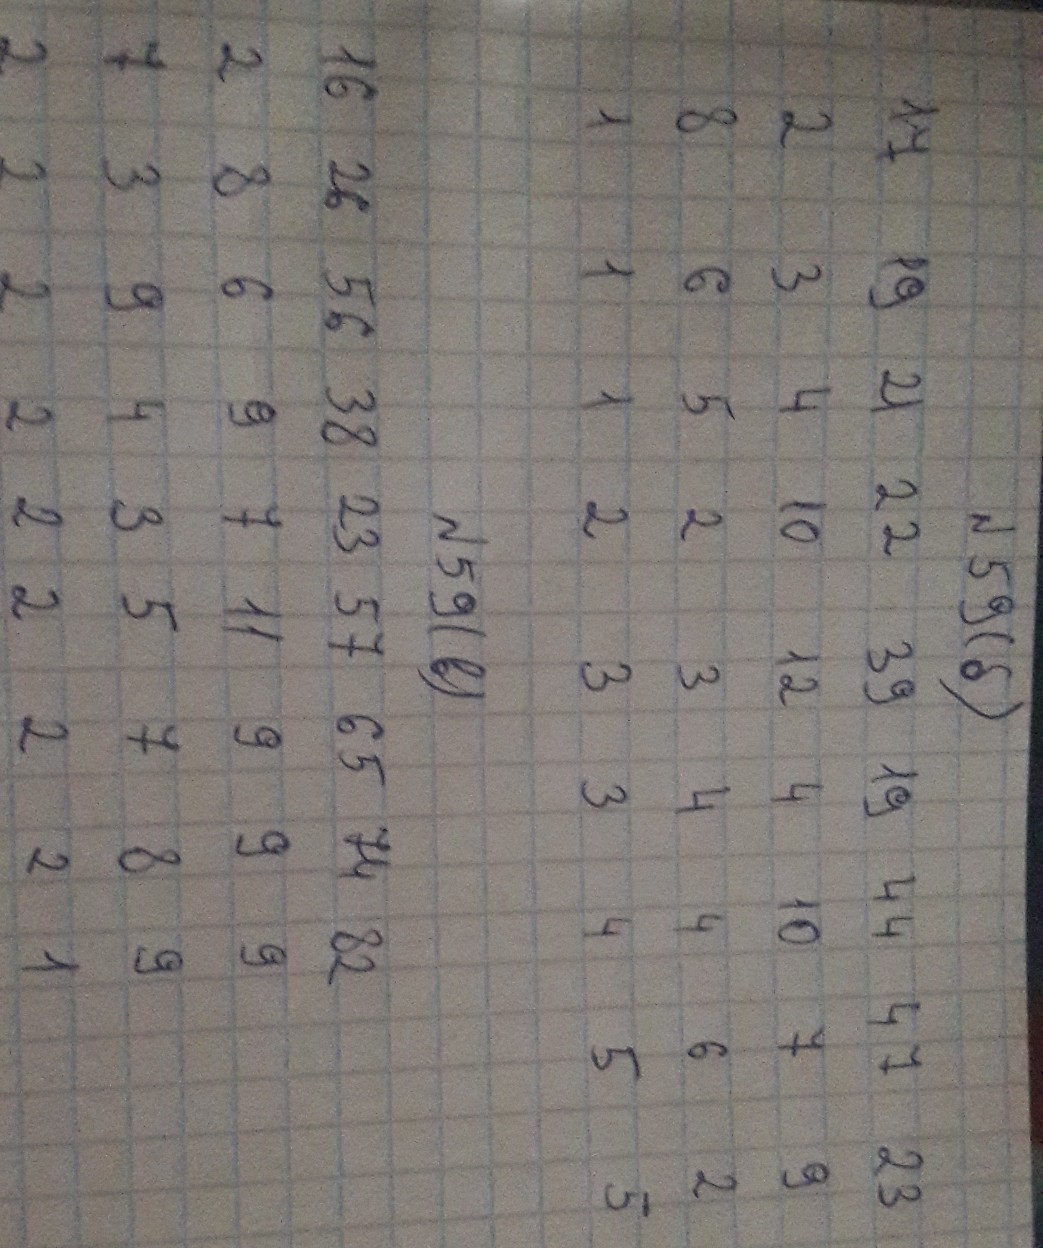 №59(б)
17 19 21 22 39 19 44 47 23
2 3 4 10 12 4 10 7 9
8 6 5 2 3 4 4 6 2
1 1 1 2 3 3 4 5 5
№59(в)
16 26 56 38 23 57 65 74 82
2 8 6 9 7 11 9 9 9
7 3 9 4 3 5 7 8 9
2 2 2 2 2 2 2 2 1